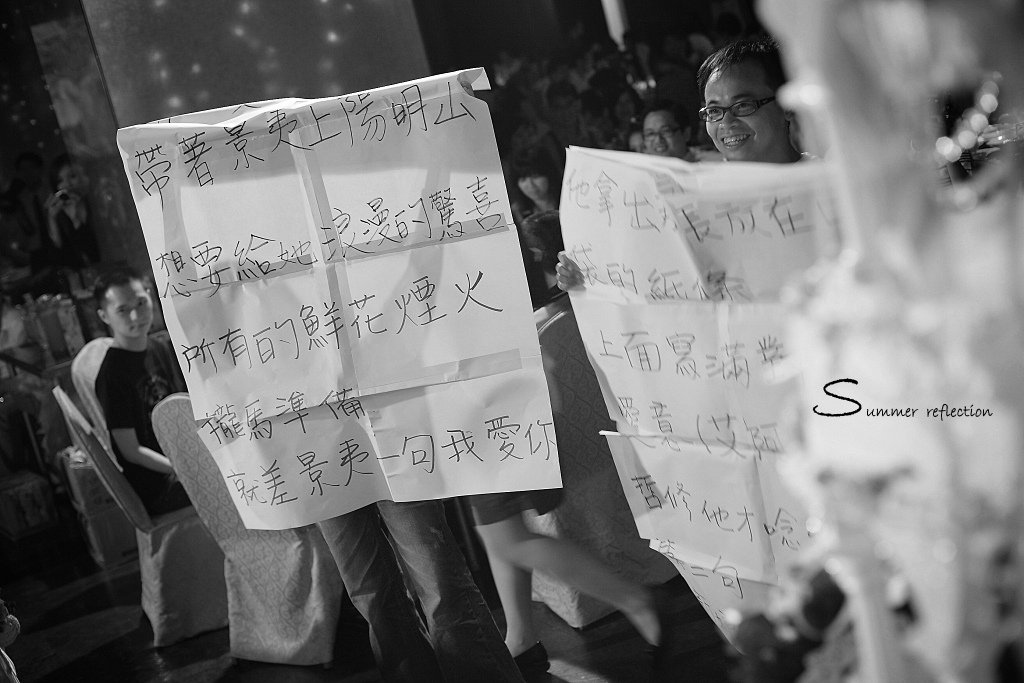 帶著景夷上陽明山
想要給她浪漫的驚喜
所有的鮮花煙火
攏馬準備
就差景夷一句我愛你
他拿出 在
的紙條
上面寫滿
意(艾阿
哲修他才唸
一句
Summer reflection